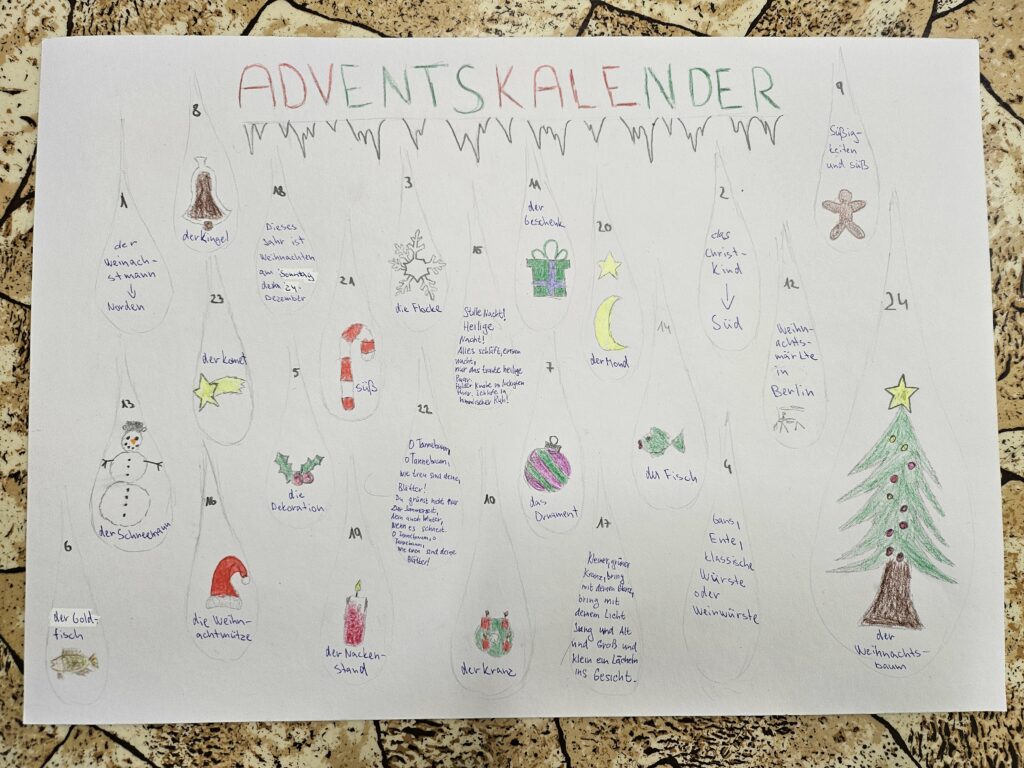 ADVENTSKALENDER
1
der
Weinach-
stmann
Norden
8
der Kingel
18
Dieses
Jahr ist
Weihnachten
am Sonntag
dem 24.
Dezember
3
die Flocke
11
der
Geschenk
20
der Mond
2
das
Christ-
Kind
Süd
9
Süßig-
keiten
und süß
23
der Komet
21
süß
15
Stille Nacht!
Heilige
Nacht!
Alles schläft, einsam
wacht,
nur das traute heilige
Paar.
Holder Knabe im lockigten
Haar, Schlafe in
himmlischer Ruh!
12
Weih-
nachts-
märkte
in
Berlin
24
der
Weihnachts-
baum
13
der Schneemann
5
die
Dekoration
22
O Tannebaum,
O Tannebaum,
Wie treu sind deine,
Blätter!
Du grünst nicht nur
Zur Sommerzeit,
Nein auch Winter,
Wenn es schneit.
O Tannebaum, o
Tannebaum,
Wie treu sind deine
Blätter!
7
das
Ornament
14
der Fisch
16
die Weih-
nachtmütze
19
der Nacken-
stand
10
der Kranz
17
Kleiner, grüner
Kranz, bring
mit deinem Glanz,
bring mit
deinem Licht
Jung und Alt
und Groß und
klein ein Lächeln
ins Gesicht.
4
Gans,
Ente,
klassische
Würste
oder
Weinwürste
6
der Gold-
fisch